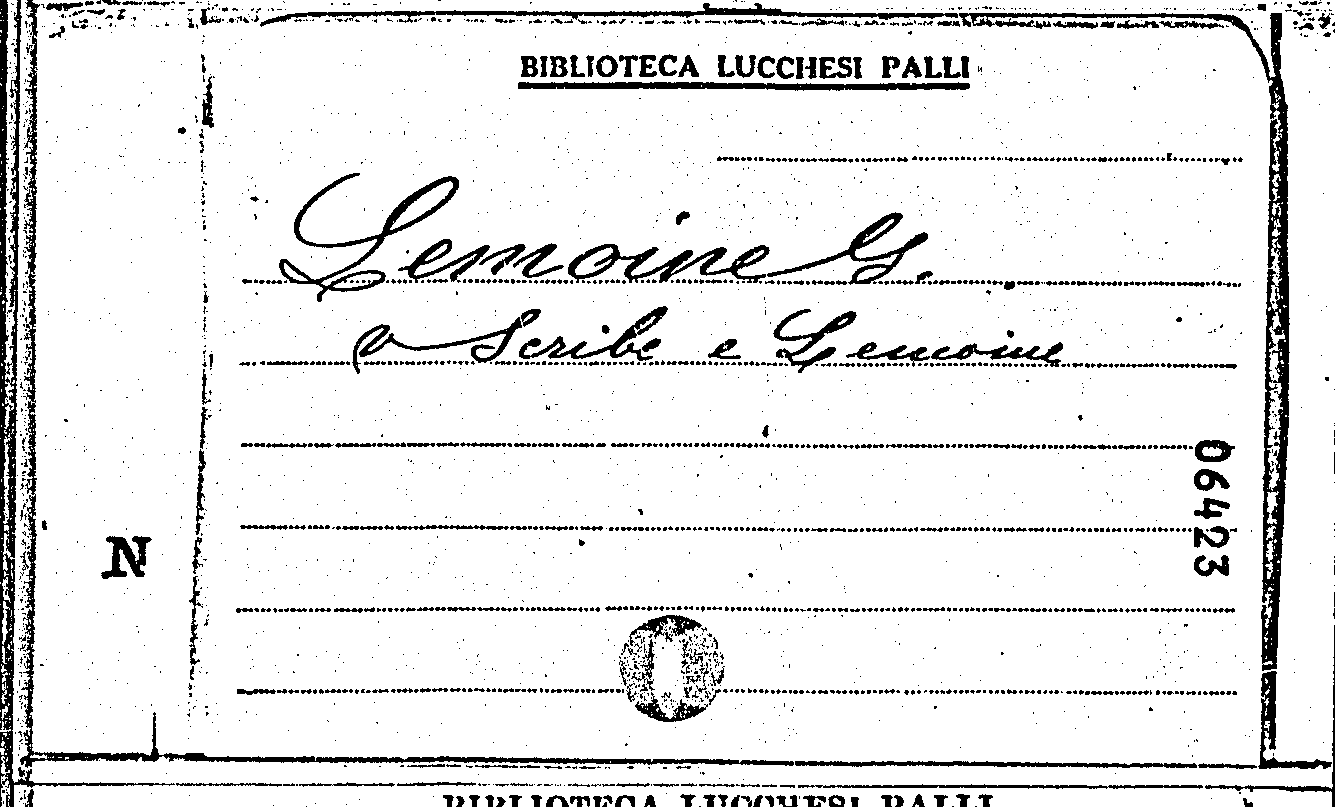 BIBLIOTECA LUCCHESI PALLI
Lemoine G.
v Scribe e Lemoine
06423
N
BIBLIOTECA LUCCHESI PALLI